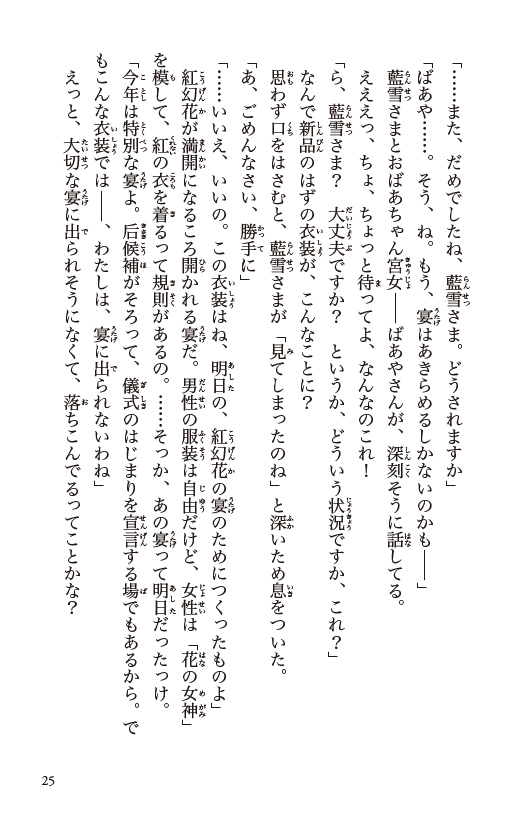 「……また、だめでしたね、藍雪さま。どうされますか」
「ばあや……。そう、ね。もう、宴はあきらめるしかないのかも――」
藍雪さまとおばあちゃん宮女――ばあやさんが、深刻そうに話してる。
えええっ、ちょ、ちょっと待ってよ、なんなのこれ！
「ら、藍雪さま？　大丈夫ですか？　というか、どういう状況ですか、これ？」
なんで新品のはずの衣装が、こんなことに？
思わず口をはさむと、藍雪さまが「見てしまったのね」と深いため息をついた。
「あ、ごめんなさい、勝手に」
「……いいえ、いいの。この衣装はね、明日の、紅幻花の宴のためにつくったものよ」
紅幻花が満開になるころ開かれる宴だ。男性の服装は自由だけど、女性は「花の女神」
を模して、紅の衣を着るって規則があるの。……そっか、あの宴って明日だったっけ。
「今年は特別な宴よ。后候補がそろって、儀式のはじまりを宣言する場でもあるから。で
もこんな衣装では――、わたしは、宴に出られないわね」
えっと、大切な宴に出られそうになくて、落ちこんでるってことかな？
25